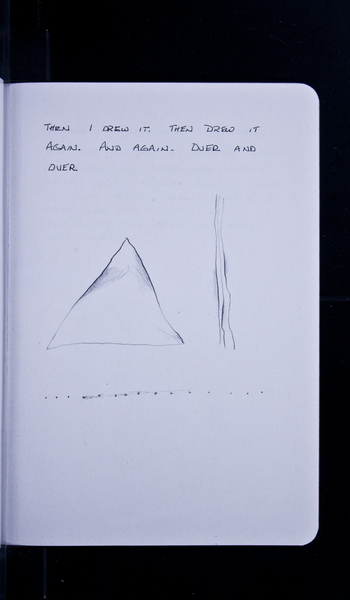 THEN I DREW IT. THEN DREW IT
AGAIN. AND AGAIN. OVER AND
OVER.